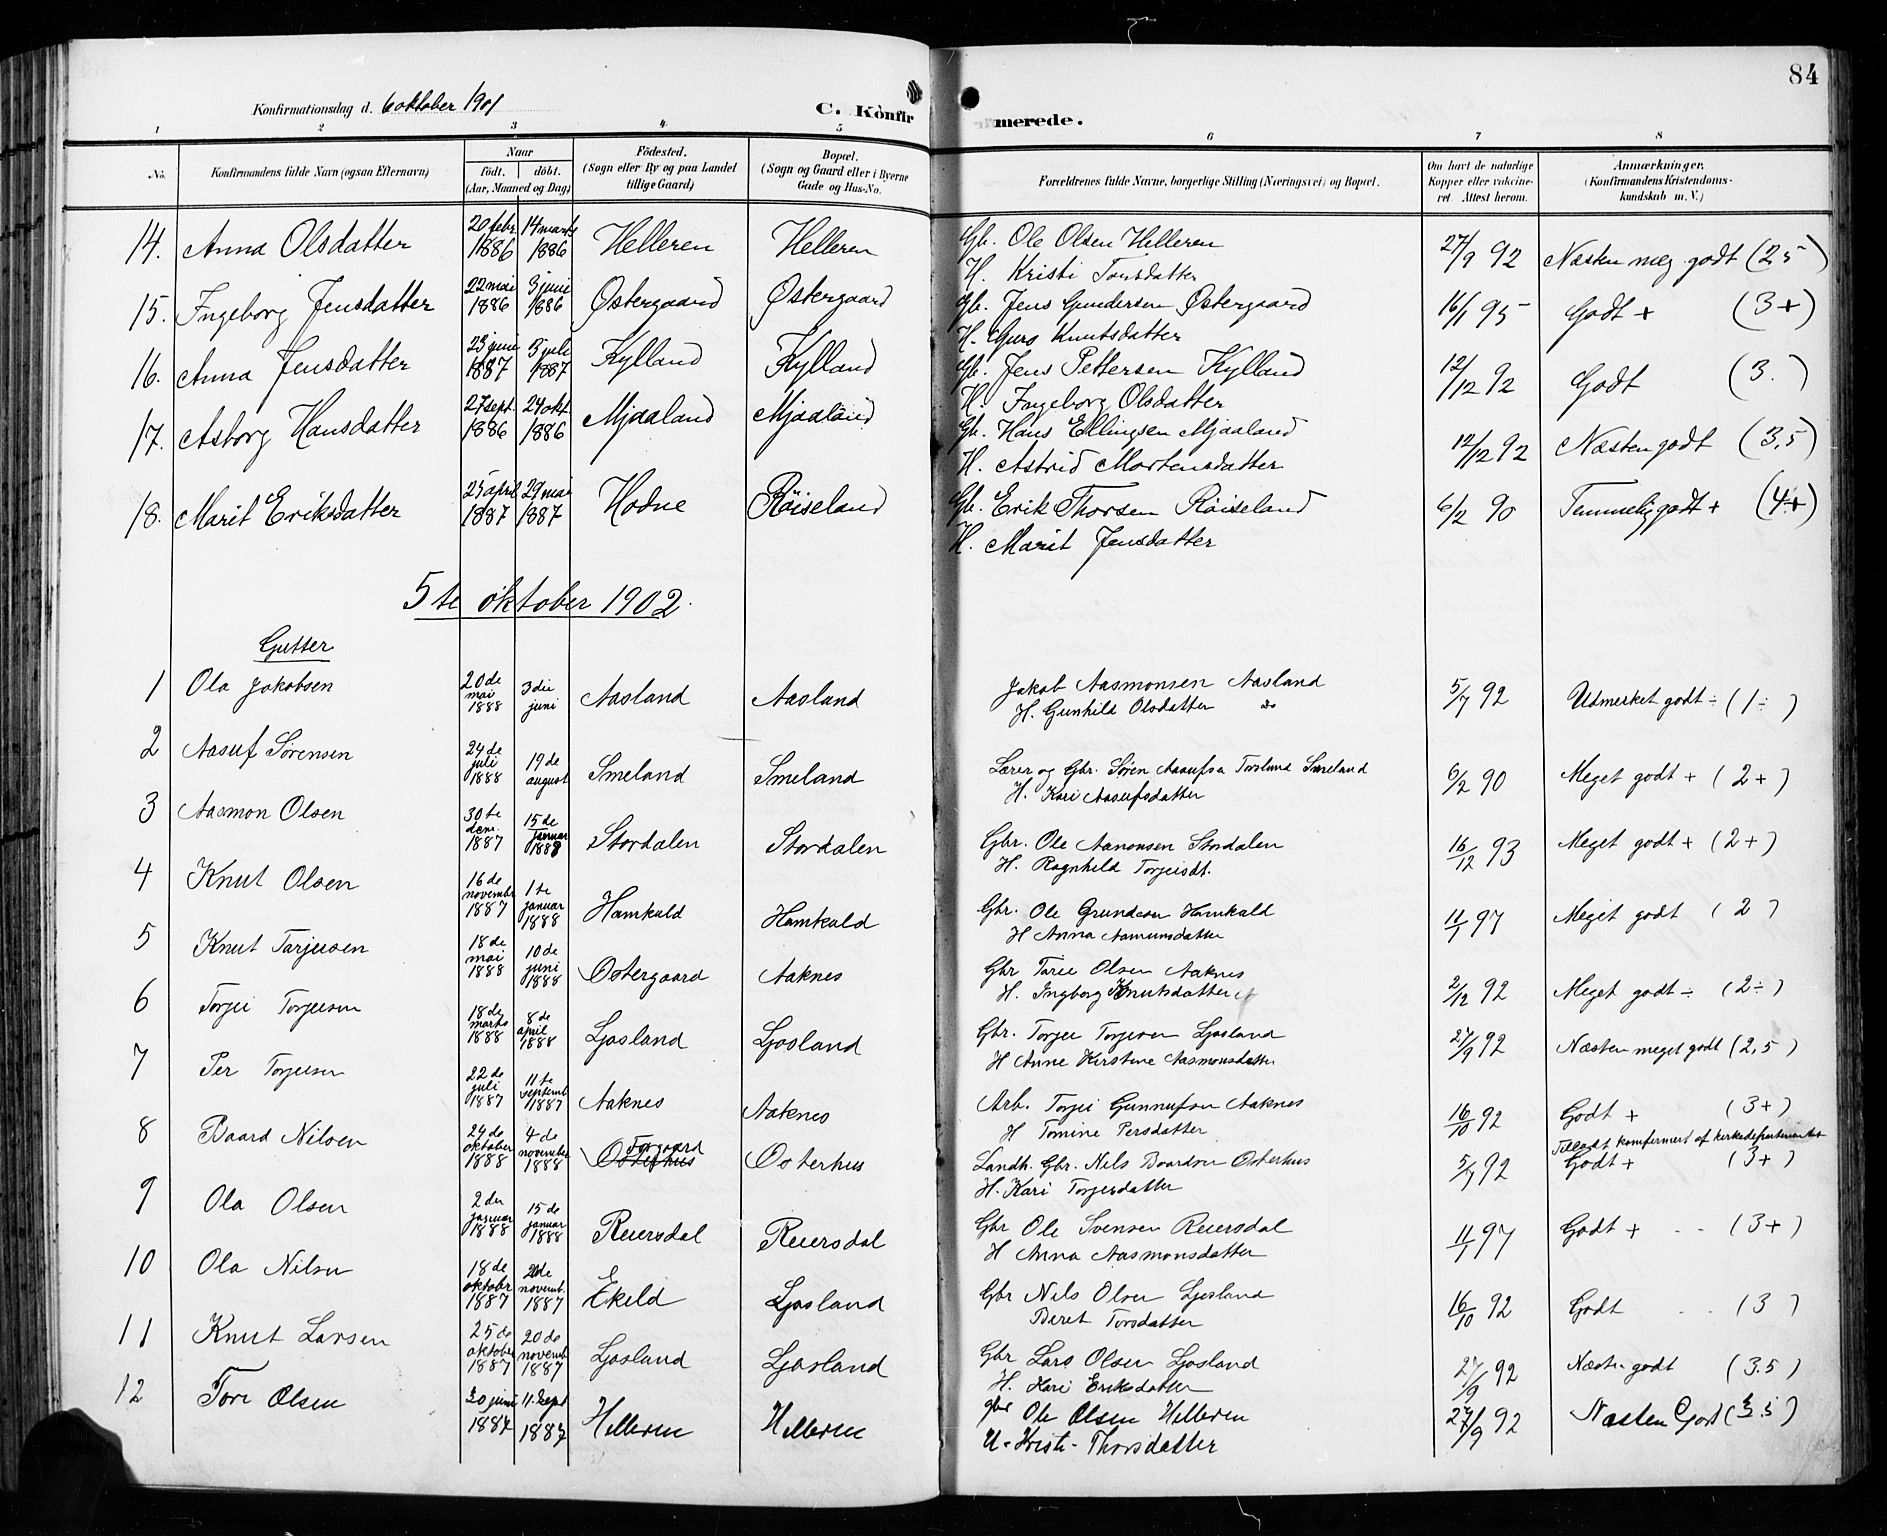 84
Konfirmationsdag d. 6 oktober 1901
C. Konfirmerede.
1 2 3 4 5 6 7 8
No.
Konfirmandens fulde Navn (ogsaa Efternavn)
Naar
født. døbt.
(Aar, Maaned og Dag)
Fødested.
(Sogn eller By og paa Landet tillige Gaard)
Bopæl.
(Sogn og Gaard eller i Byerne Gade og Hus-No.
Forældrenes fulde Navne, borgerlige Stilling (Næringsvei) og Bopæl.
Om havt de naturlige Kopper eller vakcineret. Attest herom.
Anmærkninger.
(Konfirmandens Kristendomskundskab m. V.)
14. Anna Olsdatter 20 febr 1886 14 marts 1886 Helleren Helleren Gb. Ole Olsen Helleren 27/9 92 Næsten meg. godt (2 5)
H. Kristi Torisdatter
15. Ingeborg Jensdatter 22 mai 1886 3 juni 1886 Østergaard Østergaard Gb. Jens Gundersen Østergaard 16/1 95 Godt + (3+)
H. Guro Knutsdatter
16. Anna Jensdatter 23 juni 1887 3 juli 1887 Kylland Kylland Gb. Jens Pettersen Kylland 12/12 92 Godt (3.)
H. Ingeborg Olsdatter
17. Asborg Hansdatter 27 sept. 1886 24 okt. 1886 Mjaaland Mjaaland Gb. Hans Ellingsen Mjaaland 12/12 92 Næsten godt (3,5)
H. Astrid Mortensdatter
18. Marit Eriksdatter 25 april 1887 29 mai 1887 Hodne Røiseland Gb. Erik Thorsen Røiseland 6/2 90 Temmelig godt + (4+)
H. Marit Jensdatter
5te oktober 1902.
Gutter
1 Ola Jakobsen 20de mai 1888 3die juni Aasland Aasland Jakob Aasmonsen Aasland 5/7 92 Udmerket godt ÷ (1÷)
H. Gunhild Olsdatter do
2 Aasuf Sørensen 24de juli 1888 19de august Smeland Smeland Lærer og Gbr. Søren Aasufsen Smeland 6/2 90 Meget godt + (2+)
H. Kari Aasufsdatter
3 Aasmon Olsen 30te dem. 1887 15de januar 1888 Stordalen Stordalen Gbr. Ole Aanonsen Stordalen 16/12 93 Meget godt + (2+)
H. Ragnhild Torjeisdt.
4 Knut Olsen 16de novembr 1887 1te januar 1888 Hamkald Hamkald Gbr. Ole Hamkald 11/1 97 Meget godt (2)
H Anna Aamunsdatter
5 Knut Tarjeisen 18de mai 1888 10de juni 1888 Ostergaard Aaknes Gbr Olsen Aaknes 2/12 92 Meget godt ÷ (2÷)
H. Ingborg Knutsdatter
6 Torjei Torjeisen 18de marts 1888 8de april 1888 Ljosland Ljosland Gbr. Torjei Torjeisen Ljosland 27/9 92 Næsten meget godt (2,5)
H Anne Kirstine Aasmonsdatter
7 Per Torjeisen 22de juli 1887 11te septemb 1887 Aaknes Aaknes Arb. Torjei Gunnufsen Aaknes 16/10 92 Godt + (3+)
H Tomine Persdatter
8 Baard Nilsen 24de oktober 1888 4de november 1888 Osterhus Landh. Gbr. Nils Baardsen Osterhus 5/7 92 Tilladt komfermert af kirkedepartementet Godt + (3+)
H. Kari Torjeisdatter
9 Ola Olsen 2den januar 1888 15de januar 1888 Reiersdal Reiersdal Gbr Ole Svensen Reiersdal 11/1 97 Godt + (3+)
H Anna Aasmonsdatter
10 Ola Nilsen 18de oktobr 1887 20de novemb. 1887 Ekeld Ljosland Gbr Nils Olsen Ljosland 16/10 92 Godt (3)
Beret Torsdatter
11 Knut Larsen 25de oktober 1887 20de novemb 1887 Ljosland Ljosland Gbr Lars Olsen Ljosland 27/9 92 Næsten godt (3.5)
H. Kari Eriksdatter
12 Tore Olsen 30 juni 1887 11. Sept 1887 Helleren Helleren gbr Ole Olsen Helleren 27/9 92 Næsten Godt (3.5)
H. Kristi Thorsdatter